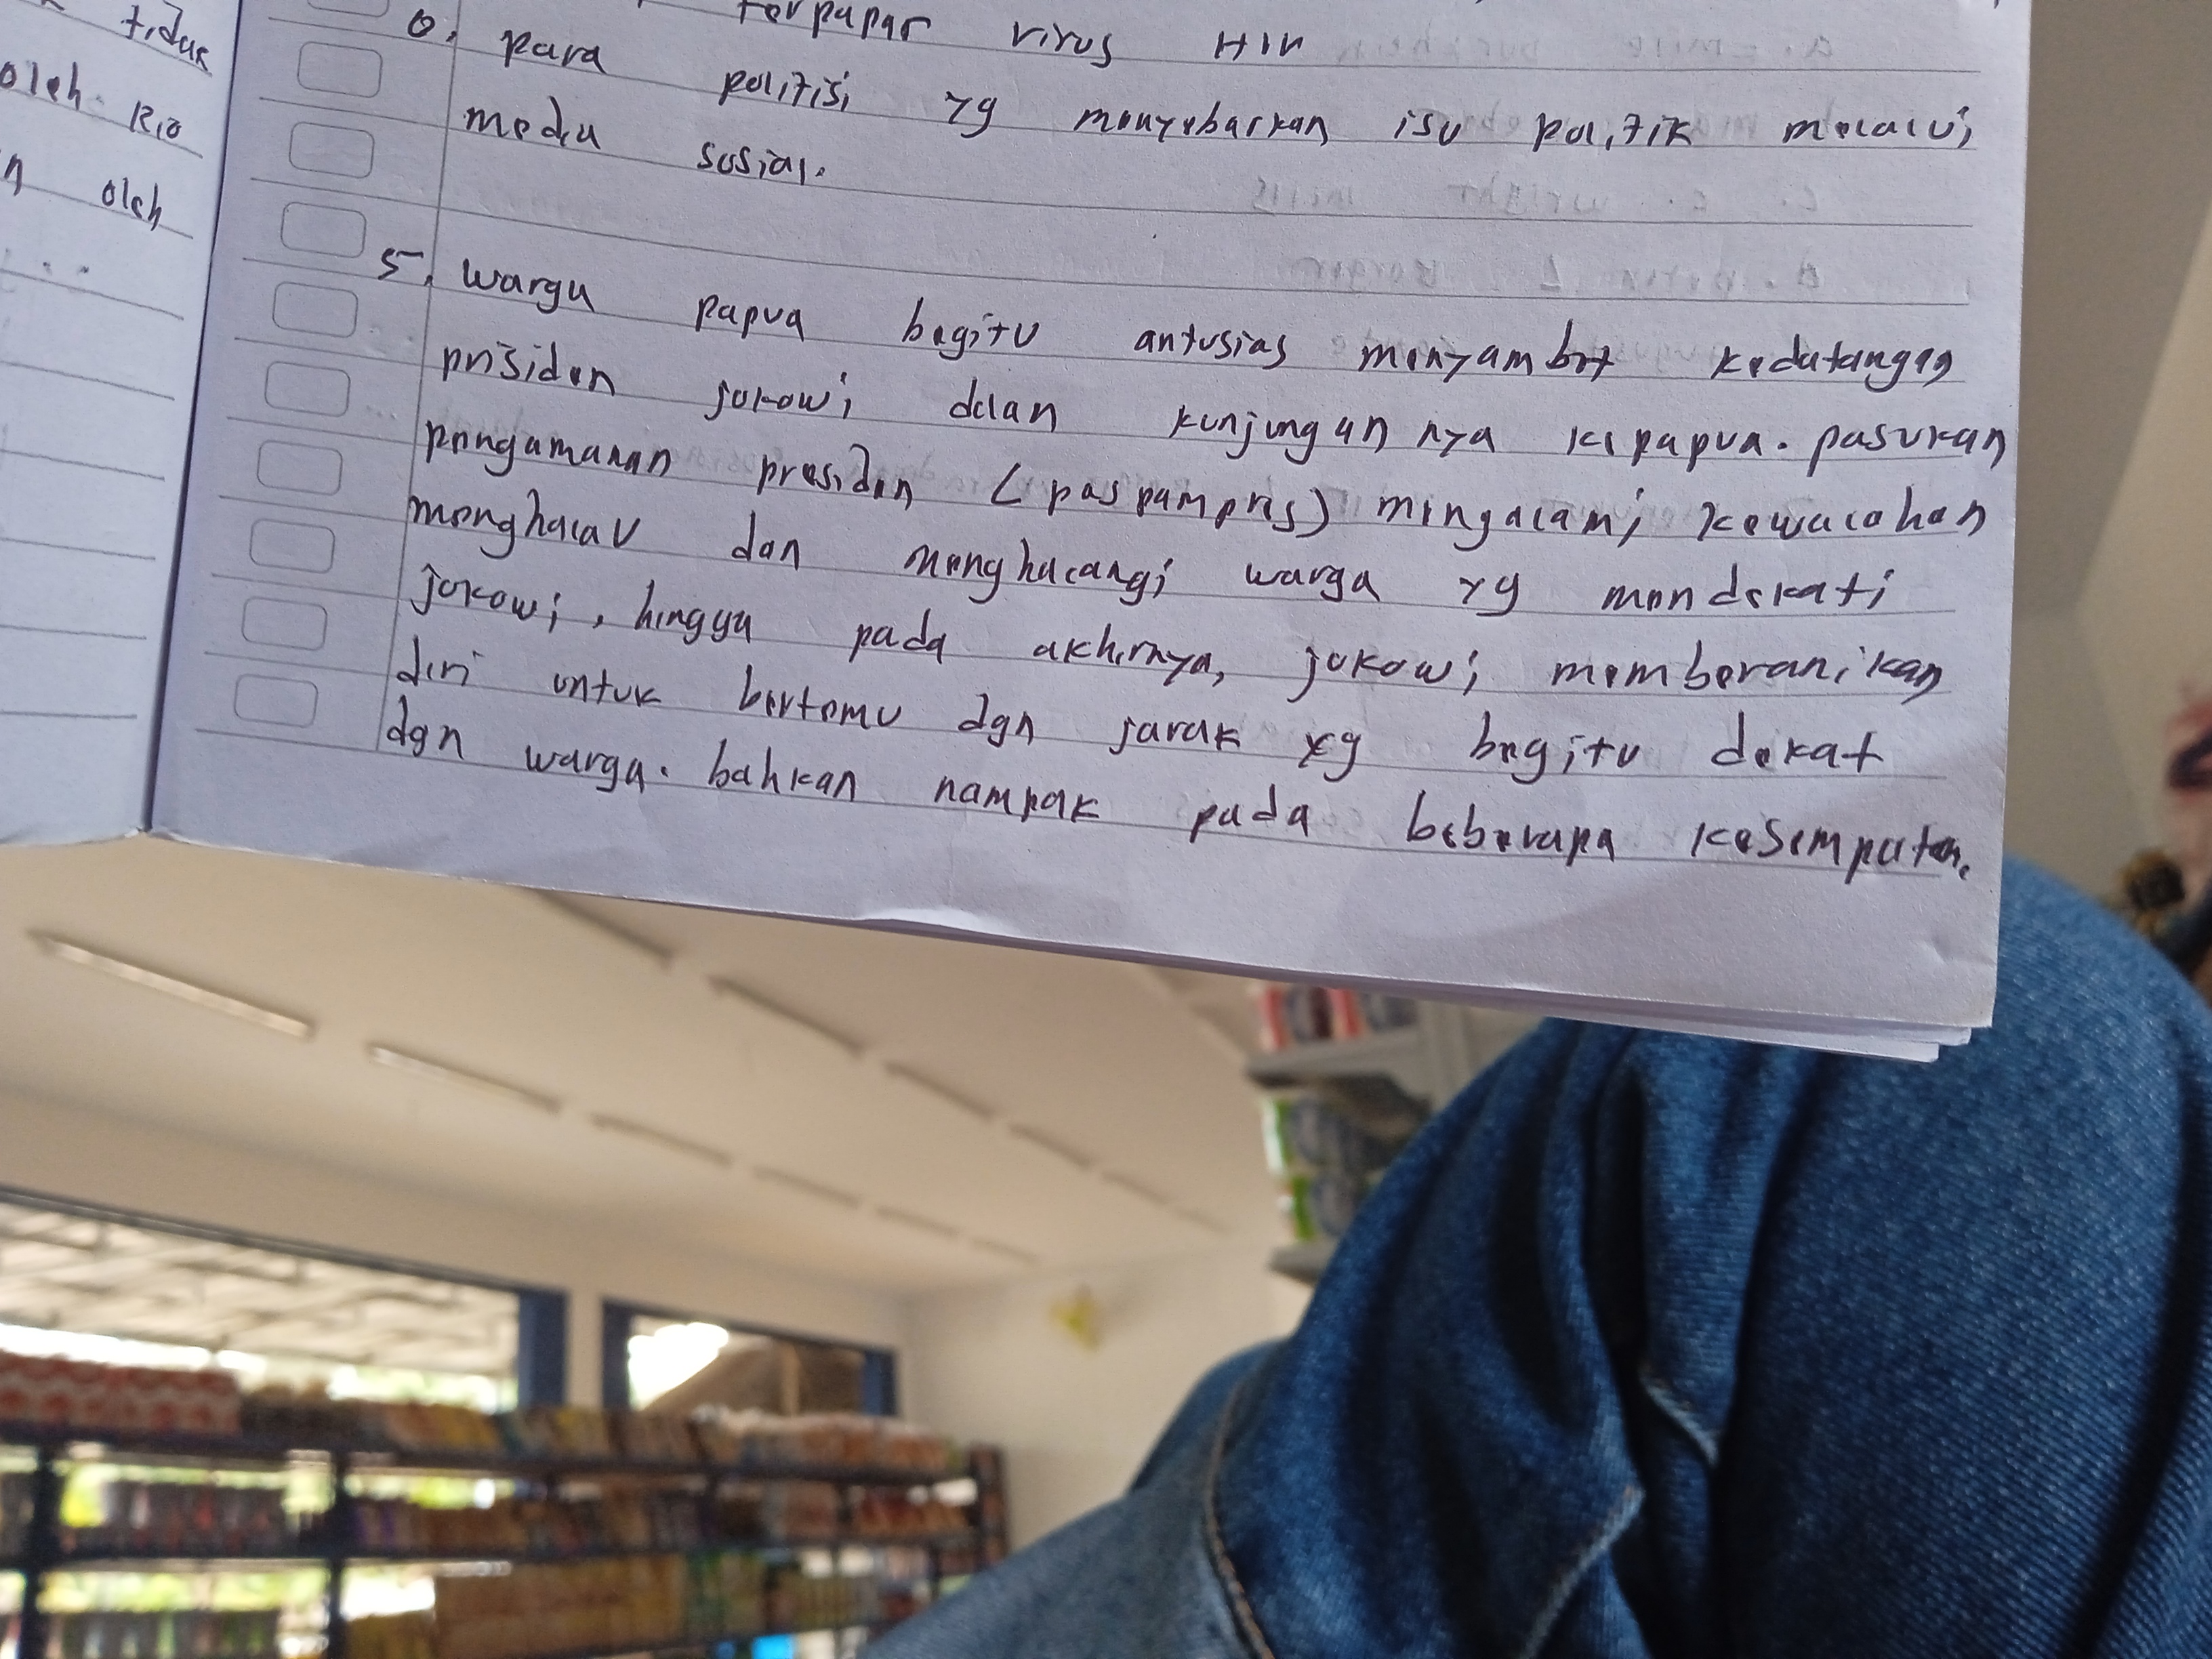 tidak
oleh Rio
n oleh
terpapar virus HIV
e. para politisi yg menyebarkan isu politik melalui
media sosial.
5. warga papua begitu antusias menyambot kedatangan
prisiden jokowi dalan kunjungan nya kepapua. pasukan
pengamanan presiden (paspampres) mengalami kewalahan
menghalau dan menghalangi warga yg mendekati
jokowi, hingga pada akhirnya, jokowi memberanikan
diri untuk bertemu dgn jarak yg begitu dekat
dgn warga. bahkan nampak pada beberapa kesempatan.